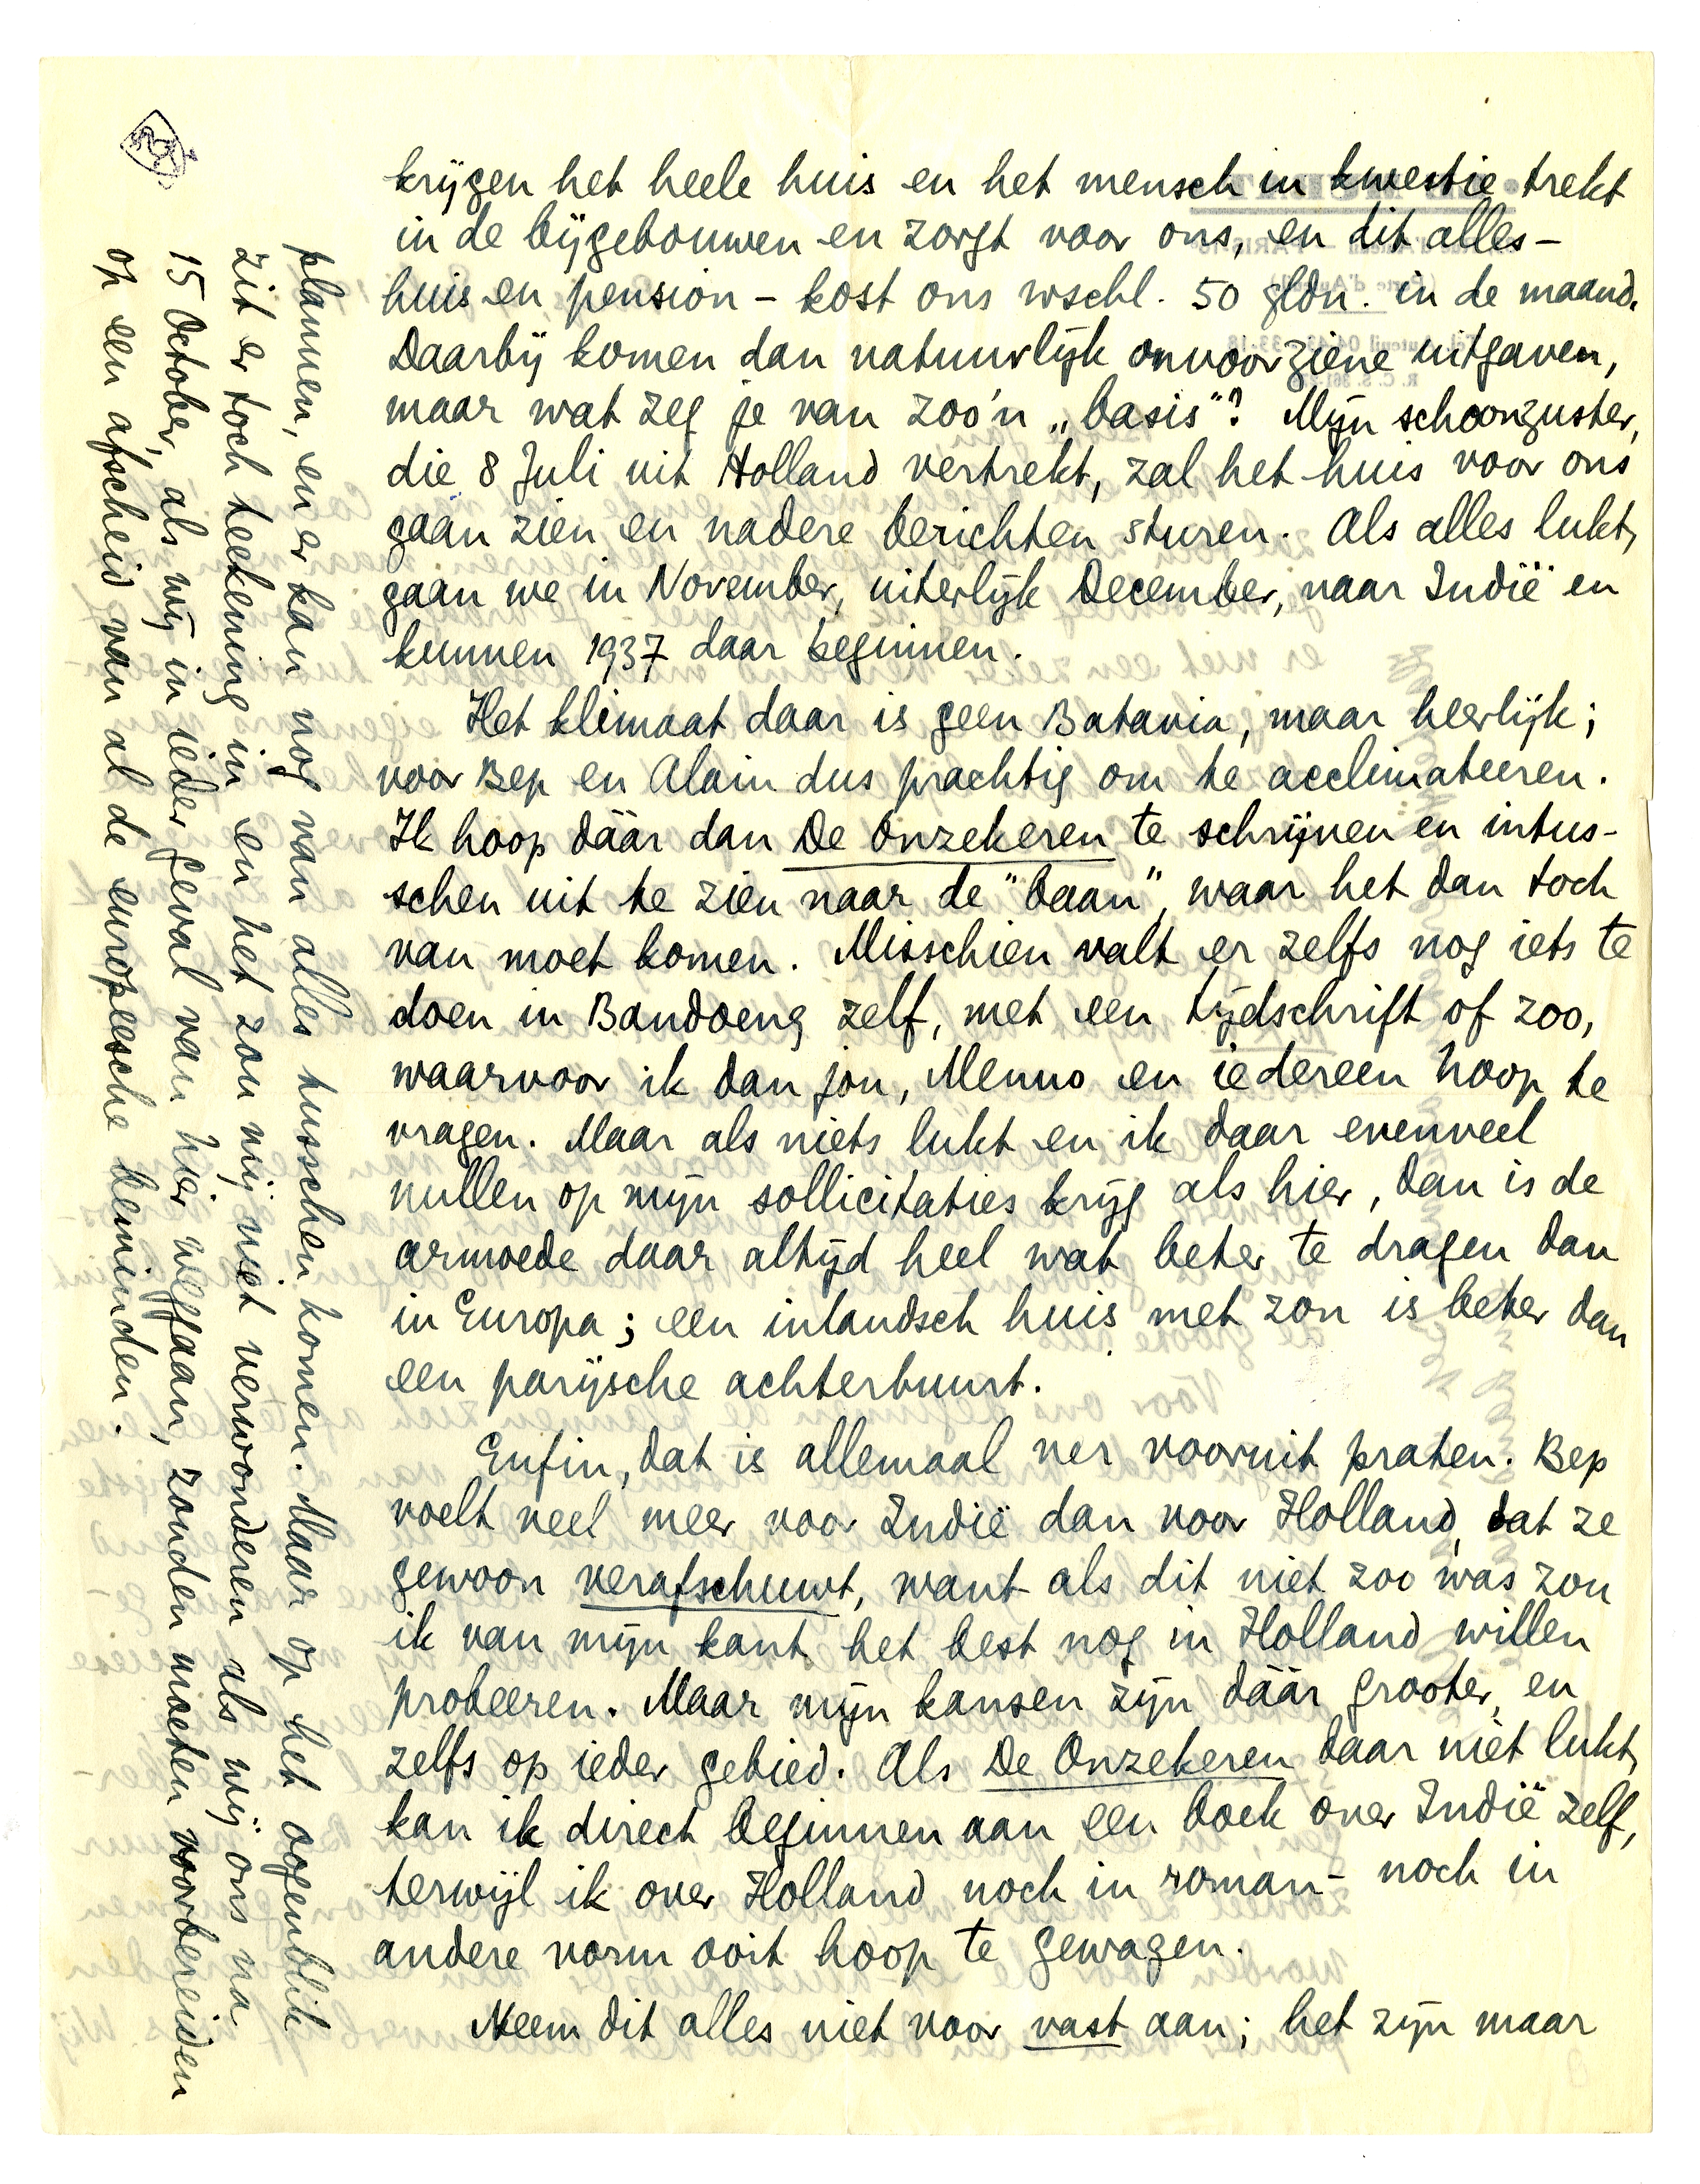 krijgen het heele huis en het mensch in kwestie trekt
in de bijgebouwen en zorgt voor ons, en dit alles -
huis en pension - kost ons wschl. 50 gldn. in de maand.
Daarbij komen dan natuurlijk onvoorziene uitgaven,
maar wat zeg je van zoo'n „basis"? Mijn schoonzuster,
die 8 Juli uit Holland vertrekt, zal het huis voor ons
gaan zien en nadere berichten sturen. Als alles lukt,
gaan we in November, uiterlijk December, naar Indië en
kunnen 1937 daar beginnen.
Het klimaat daar is geen Batavia, maar heerlijk;
voor Bep en Alain dus prachtig om te acclimateeren.
Ik hoop dáár dan De Onzekeren te schrijven en intus-
schen uit te zien naar de "baan", waar het dan toch
van moet komen. Misschien valt er zelfs nog iets te
doen in Bandoeng zelf, met een tijdschrift of zoo,
waarvoor ik dan jou, Menno en iedereen hoop te
vragen. Maar als niets lukt en ik daar evenveel
nullen op mijn sollicitaties krijg als hier, dan is de
armoede daar altijd heel wat beter te dragen dan
in Europa; een inlandsch huis met zon is beter dan
een parijsche achterbuurt.
Enfin, dat is allemaal ver vooruit praten. Bep
voelt veel meer voor Indië dan voor Holland, dat ze
gewoon verafschuwt, want als dit niet zoo was zou
ik van mijn kant het best nog in Holland willen
probeeren. Maar mijn kansen zijn dáár grooter, en
zelfs op ieder gebied. Als De Onzekeren daar niet lukt,
kan ik direct beginnen aan een boek over Indië zelf,
terwijl ik over Holland noch in roman- noch in
andere vorm ooit hoop te gewagen.
Neem dit alles niet voor vast aan; het zijn maar
plannen, en er kan nog van alles tusschen komen. Maar op het oogenblik
zit er toch teekening in en het zou mij niet verwonderen als wij ons na
15 October, als wij in ieder geval van hier weggaan, zouden moeten voorbereiden
op een afscheid van al de europeesche beminden.